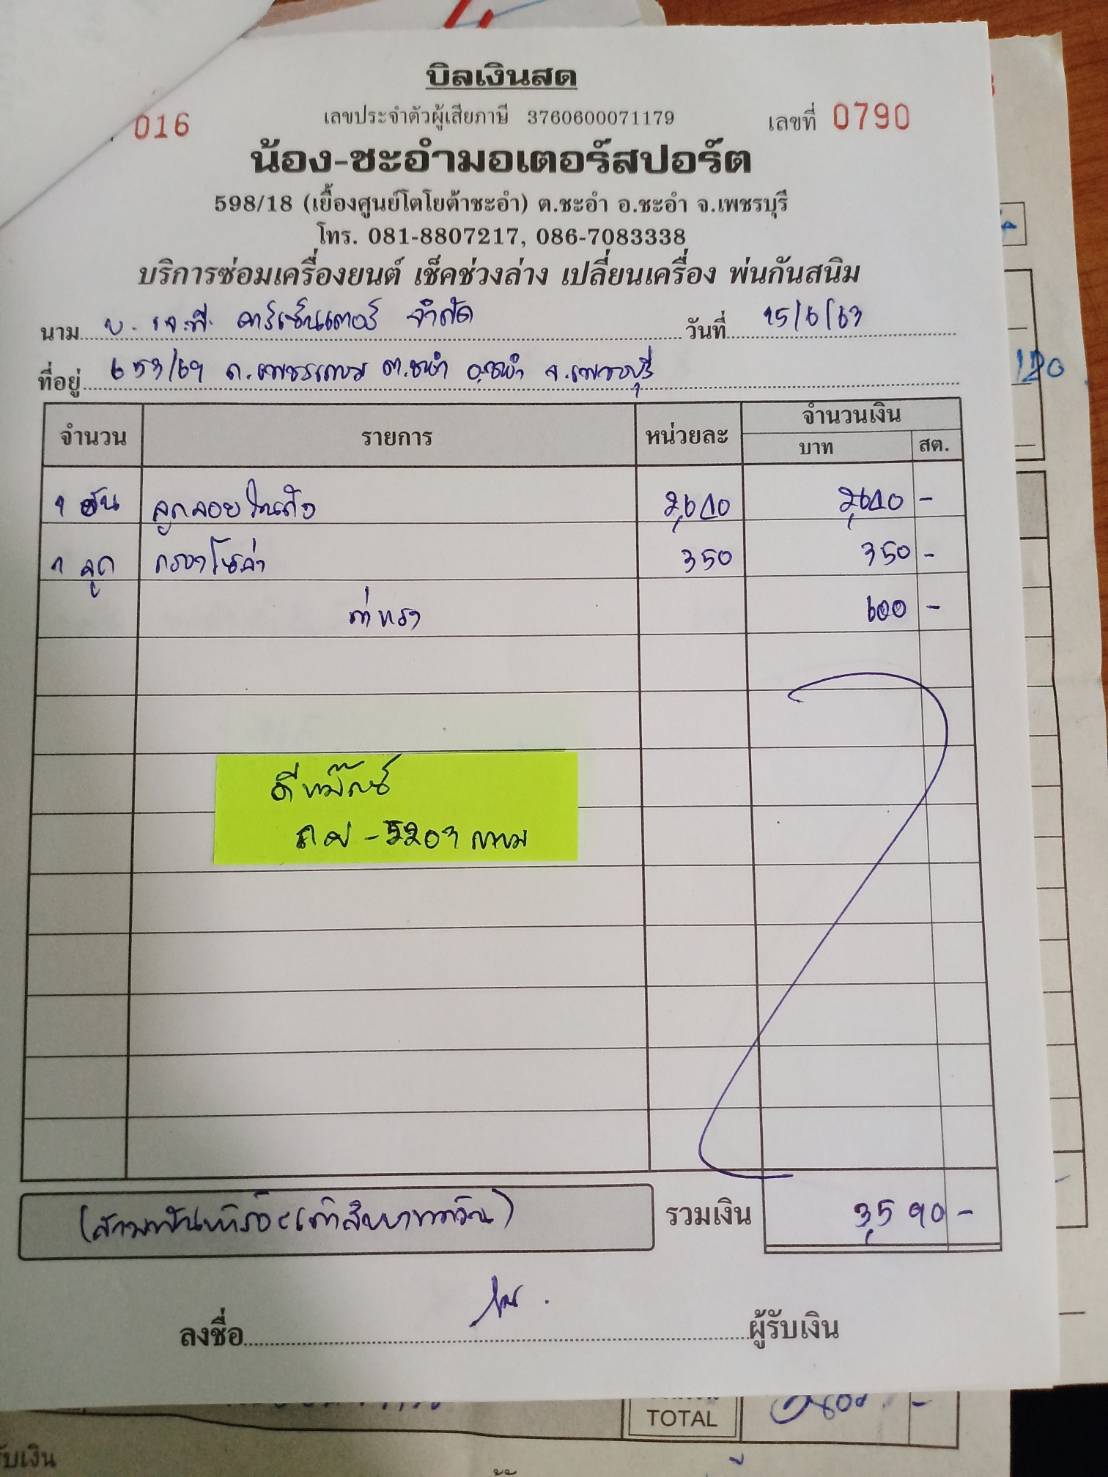 บิลเงินสด
016
เลขประจำตัวผู้เสียภาษี 3760600071179
เลขที่ 0790
น้อง-ชะอำมอเตอร์สปอร์ต
598/18 (เยื้องศูนย์โตโยต้าชะอำ) ต.ชะอำ อ.ชะอำ จ.เพชรบุรี
โทร. 081-8807217, 086-7083338
บริการซ่อมเครื่องยนต์ เช็คช่วงล่าง เปลี่ยนเครื่อง พ่นกันสนิม
นาม บ. เจ.พี. คาร์เซ็นเตอร์ จำกัด วันที่ 15/6/63
ที่อยู่ 653/69 ถ.เพชรเกษม ต.ชะอำ อ.ชะอำ จ.เพชรบุรี
จำนวน รายการ หน่วยละ จำนวนเงิน
บาท สต.
1 อัน ลูกลอยในถัง 2,640 2,640 -
1 ลูก กรองโซล่า 350 350 -
ค่าแรง 600 -
ดีแม๊กซ์
-5203 กทม
(สามพันห้าร้อยเก้าสิบบาทถ้วน) รวมเงิน 3,590 -
ลงชื่อ ผู้รับเงิน
TOTAL
รับเงิน
120